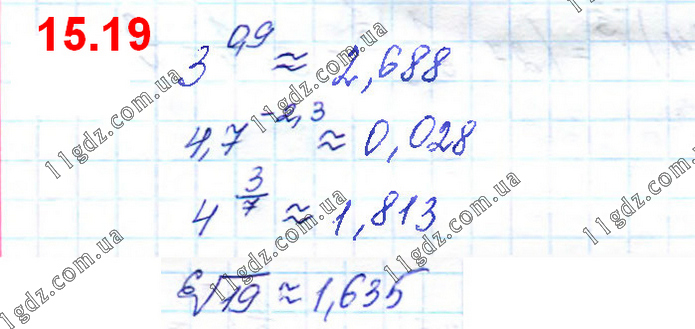 15.19
3^0,9 ≈ 2,688
4,7^-2,3 ≈ 0,028
4^3/7 ≈ 1,813
⁶√19 ≈ 1,635
11gdz.com.ua
11gdz.com.ua
11gdz.com.ua
11gdz.com.ua
11gdz.com.ua
11gdz.com.ua
11gdz.com.ua
11gdz.com.ua